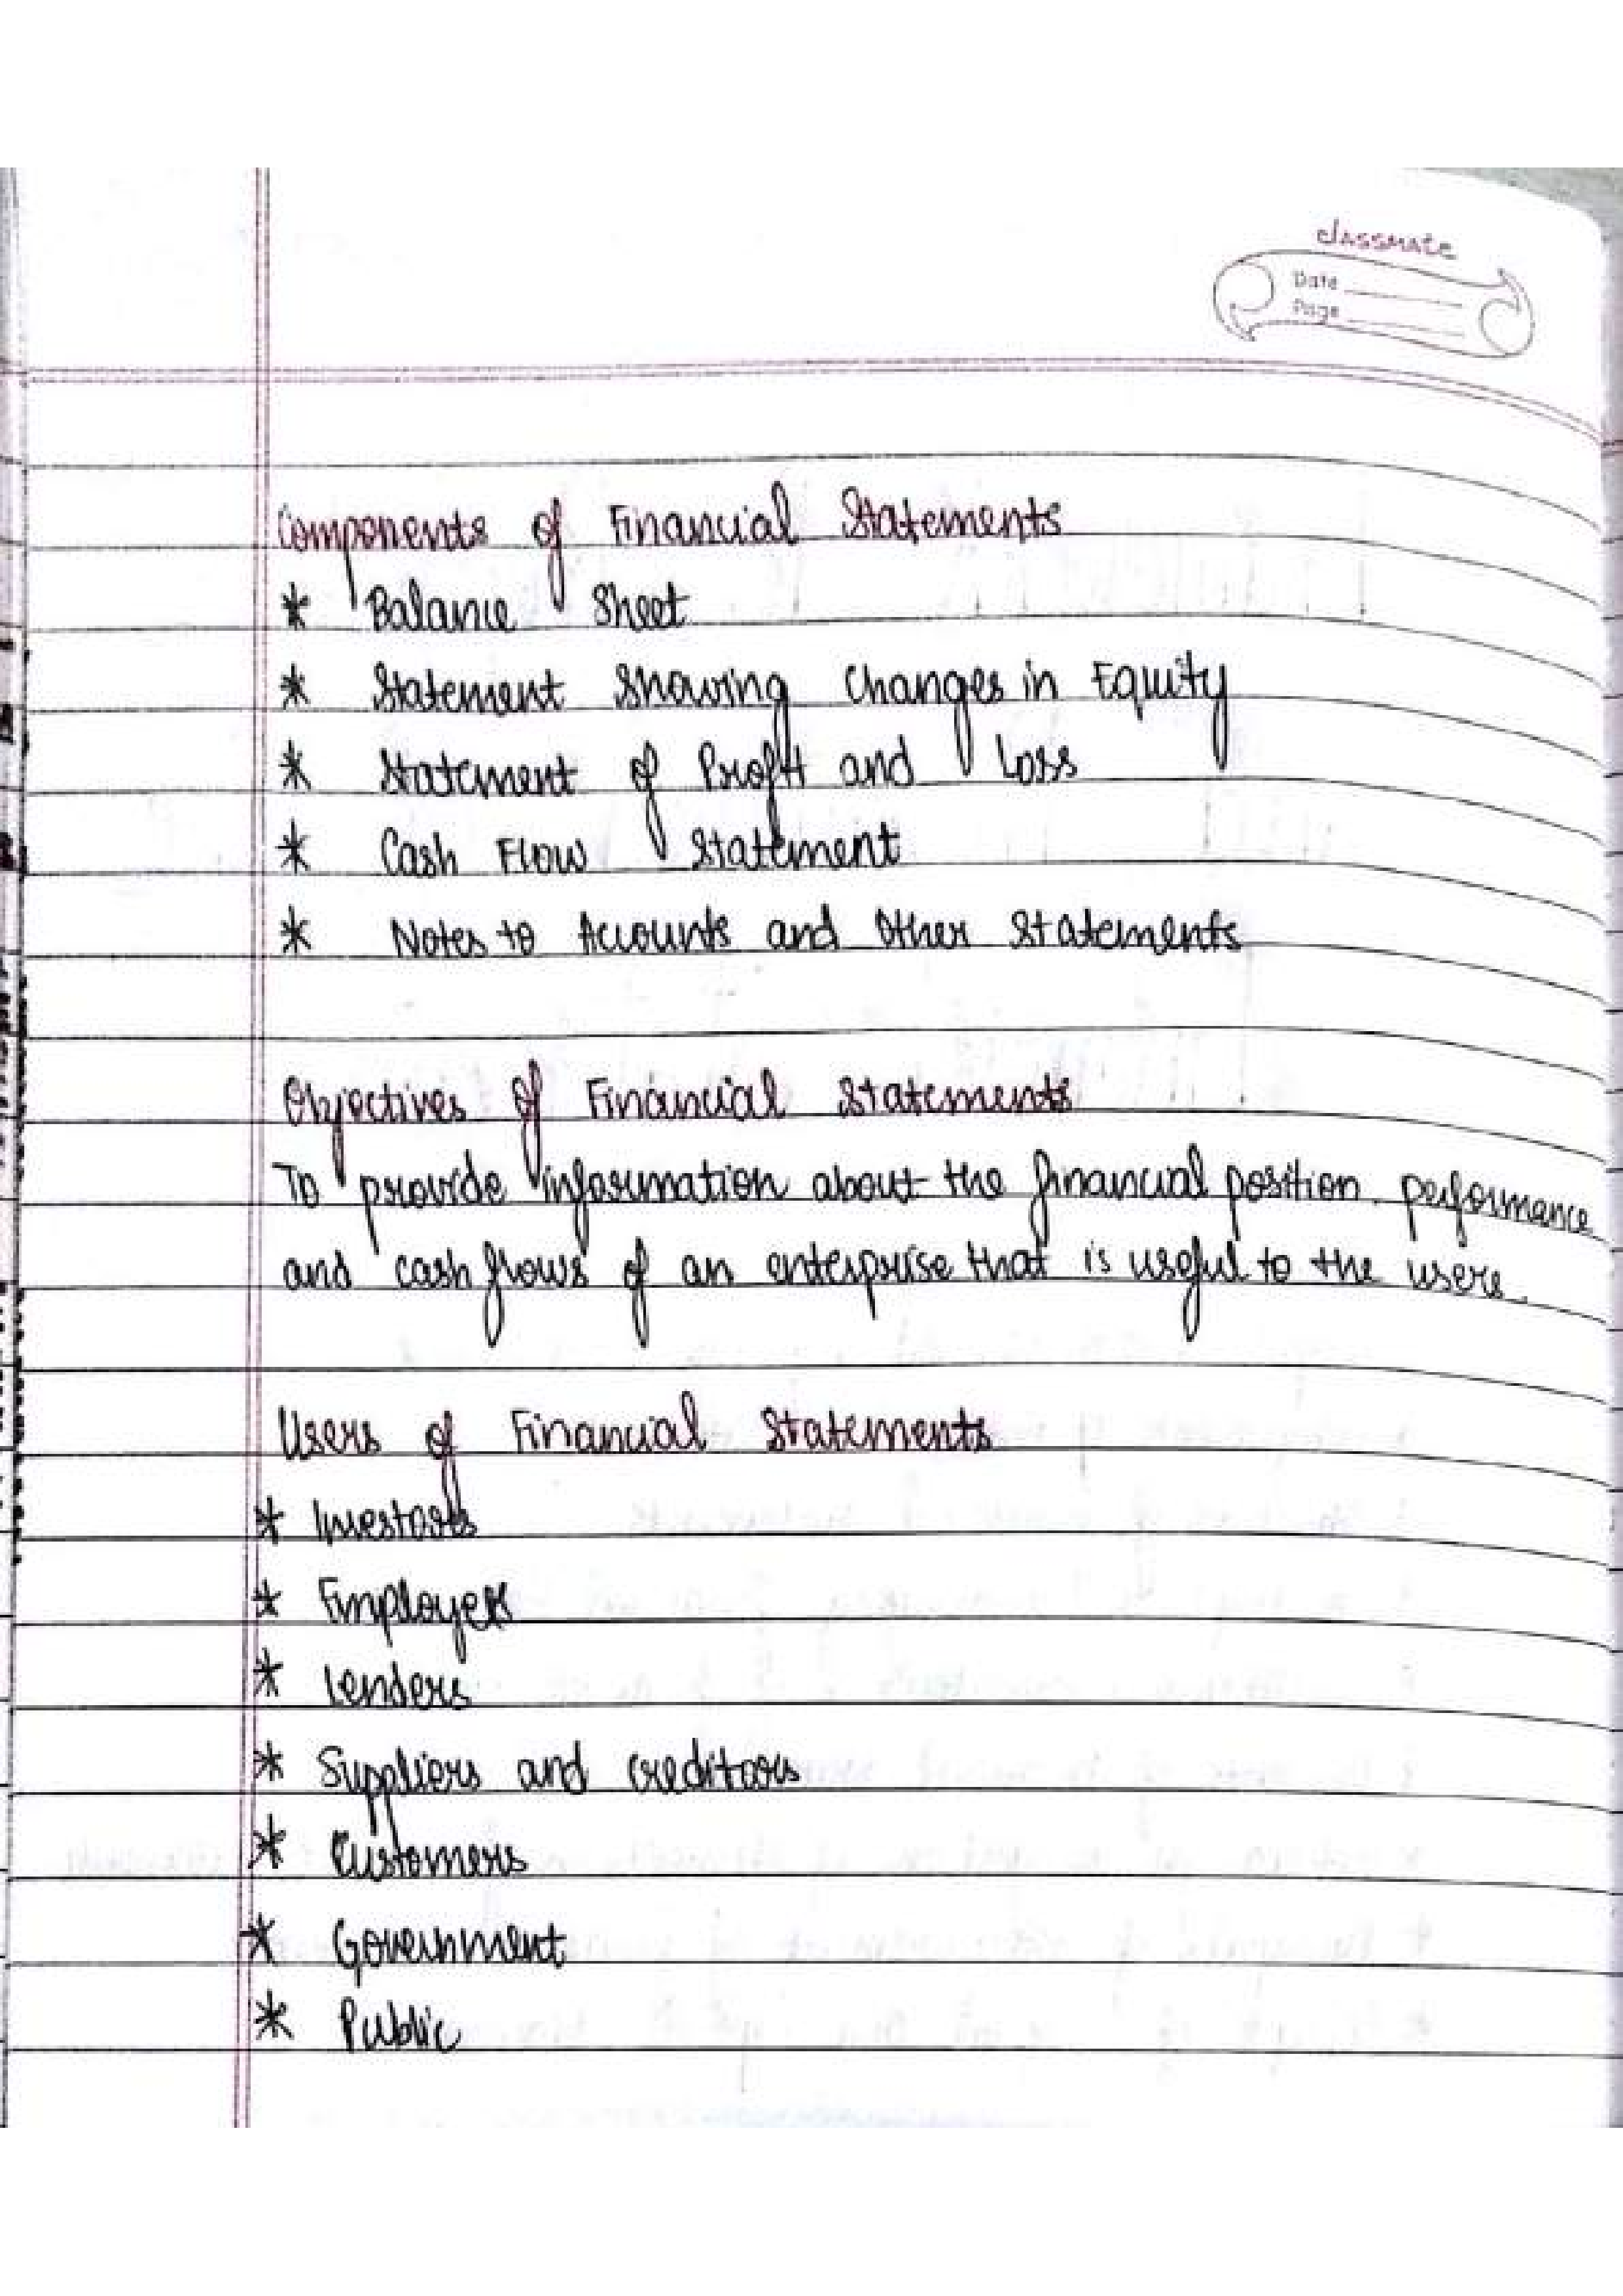 classmate
Date
Page
Components of Financial Statements
* Balance Sheet
* Statement Showing Changes in Equity
* Statement of Profit and Loss
* Cash Flow Statement
* Notes to Accounts and Other Statements
Objectives of Financial Statements
To provide information about the financial position, performance
and cash flows of an enterprise that is useful to the users.
Users of Financial Statements
* Investors
* Employers
* Lenders
* Suppliers and Creditors
* Customers
* Government
* Public